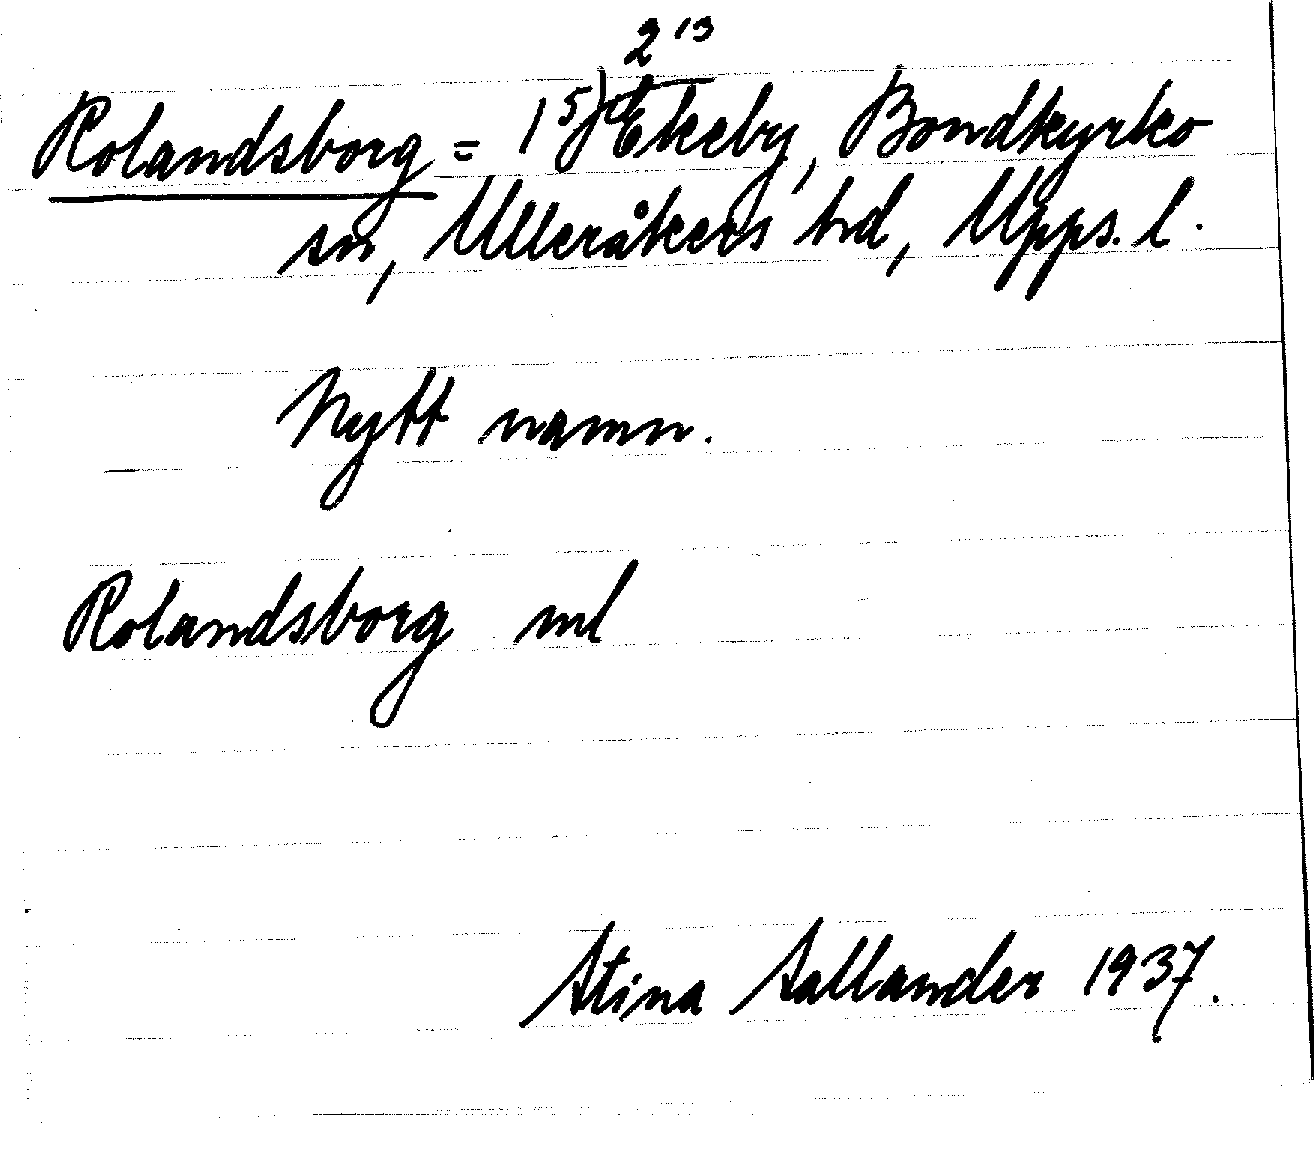 2 13
Rolandsborg = 1 5) Ekeby, Bondkyrko
sn, Ulleråkers hd, Upps. l.
Nytt namn.
Rolandsborg ml
Stina Sallander 1937.